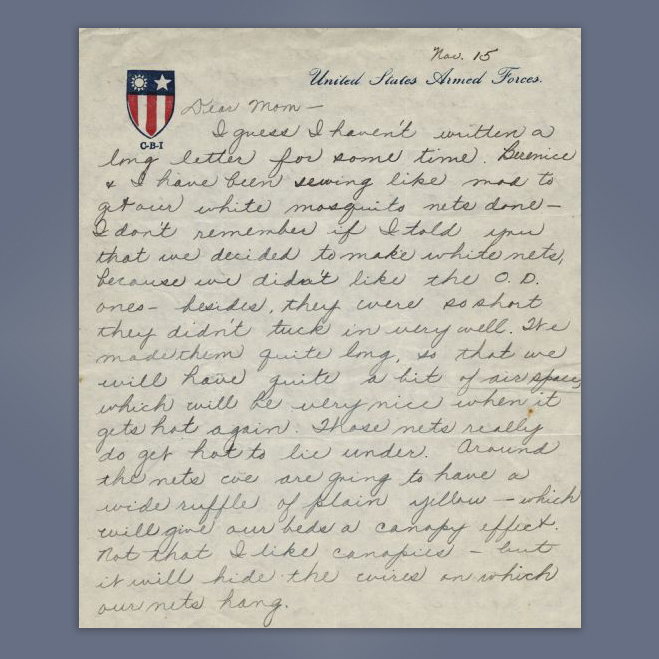 Nov. 15
United States Armed Forces.
C-B-I
Dear Mom —
I guess I haven't written a
long letter for some time. Berenice
& I have been sewing like mad to
get our white mosquito nets done —
I don't remember if I told you
that we decided to make white nets,
because we didn't like the O.D.
ones — besides, they were so short
they didn't tuck in very well. We
made them quite long, so that we
will have quite a bit of air space,
which will be very nice when it
gets hot again. Those nets really
do get hot to lie under. Around
the nets we are going to have a
wide ruffle of plain yellow — which
will give our beds a canopy effect.
Not that I like canopies — but
it will hide the wires on which
our nets hang.